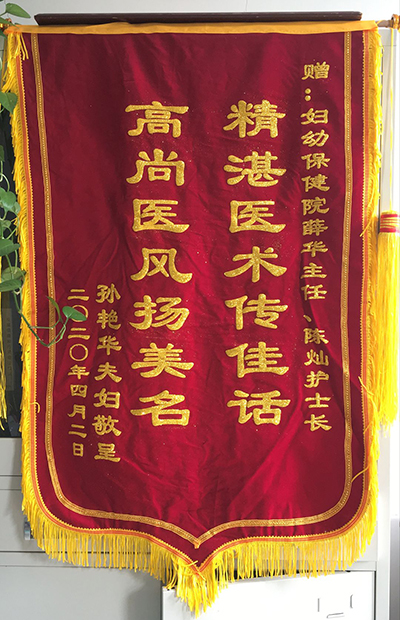 赠：妇幼保健院薛华主任、陈灿护士长
精湛医术传佳话
高尚医风扬美名
孙艳华夫妇敬呈
二〇二〇年四月二日